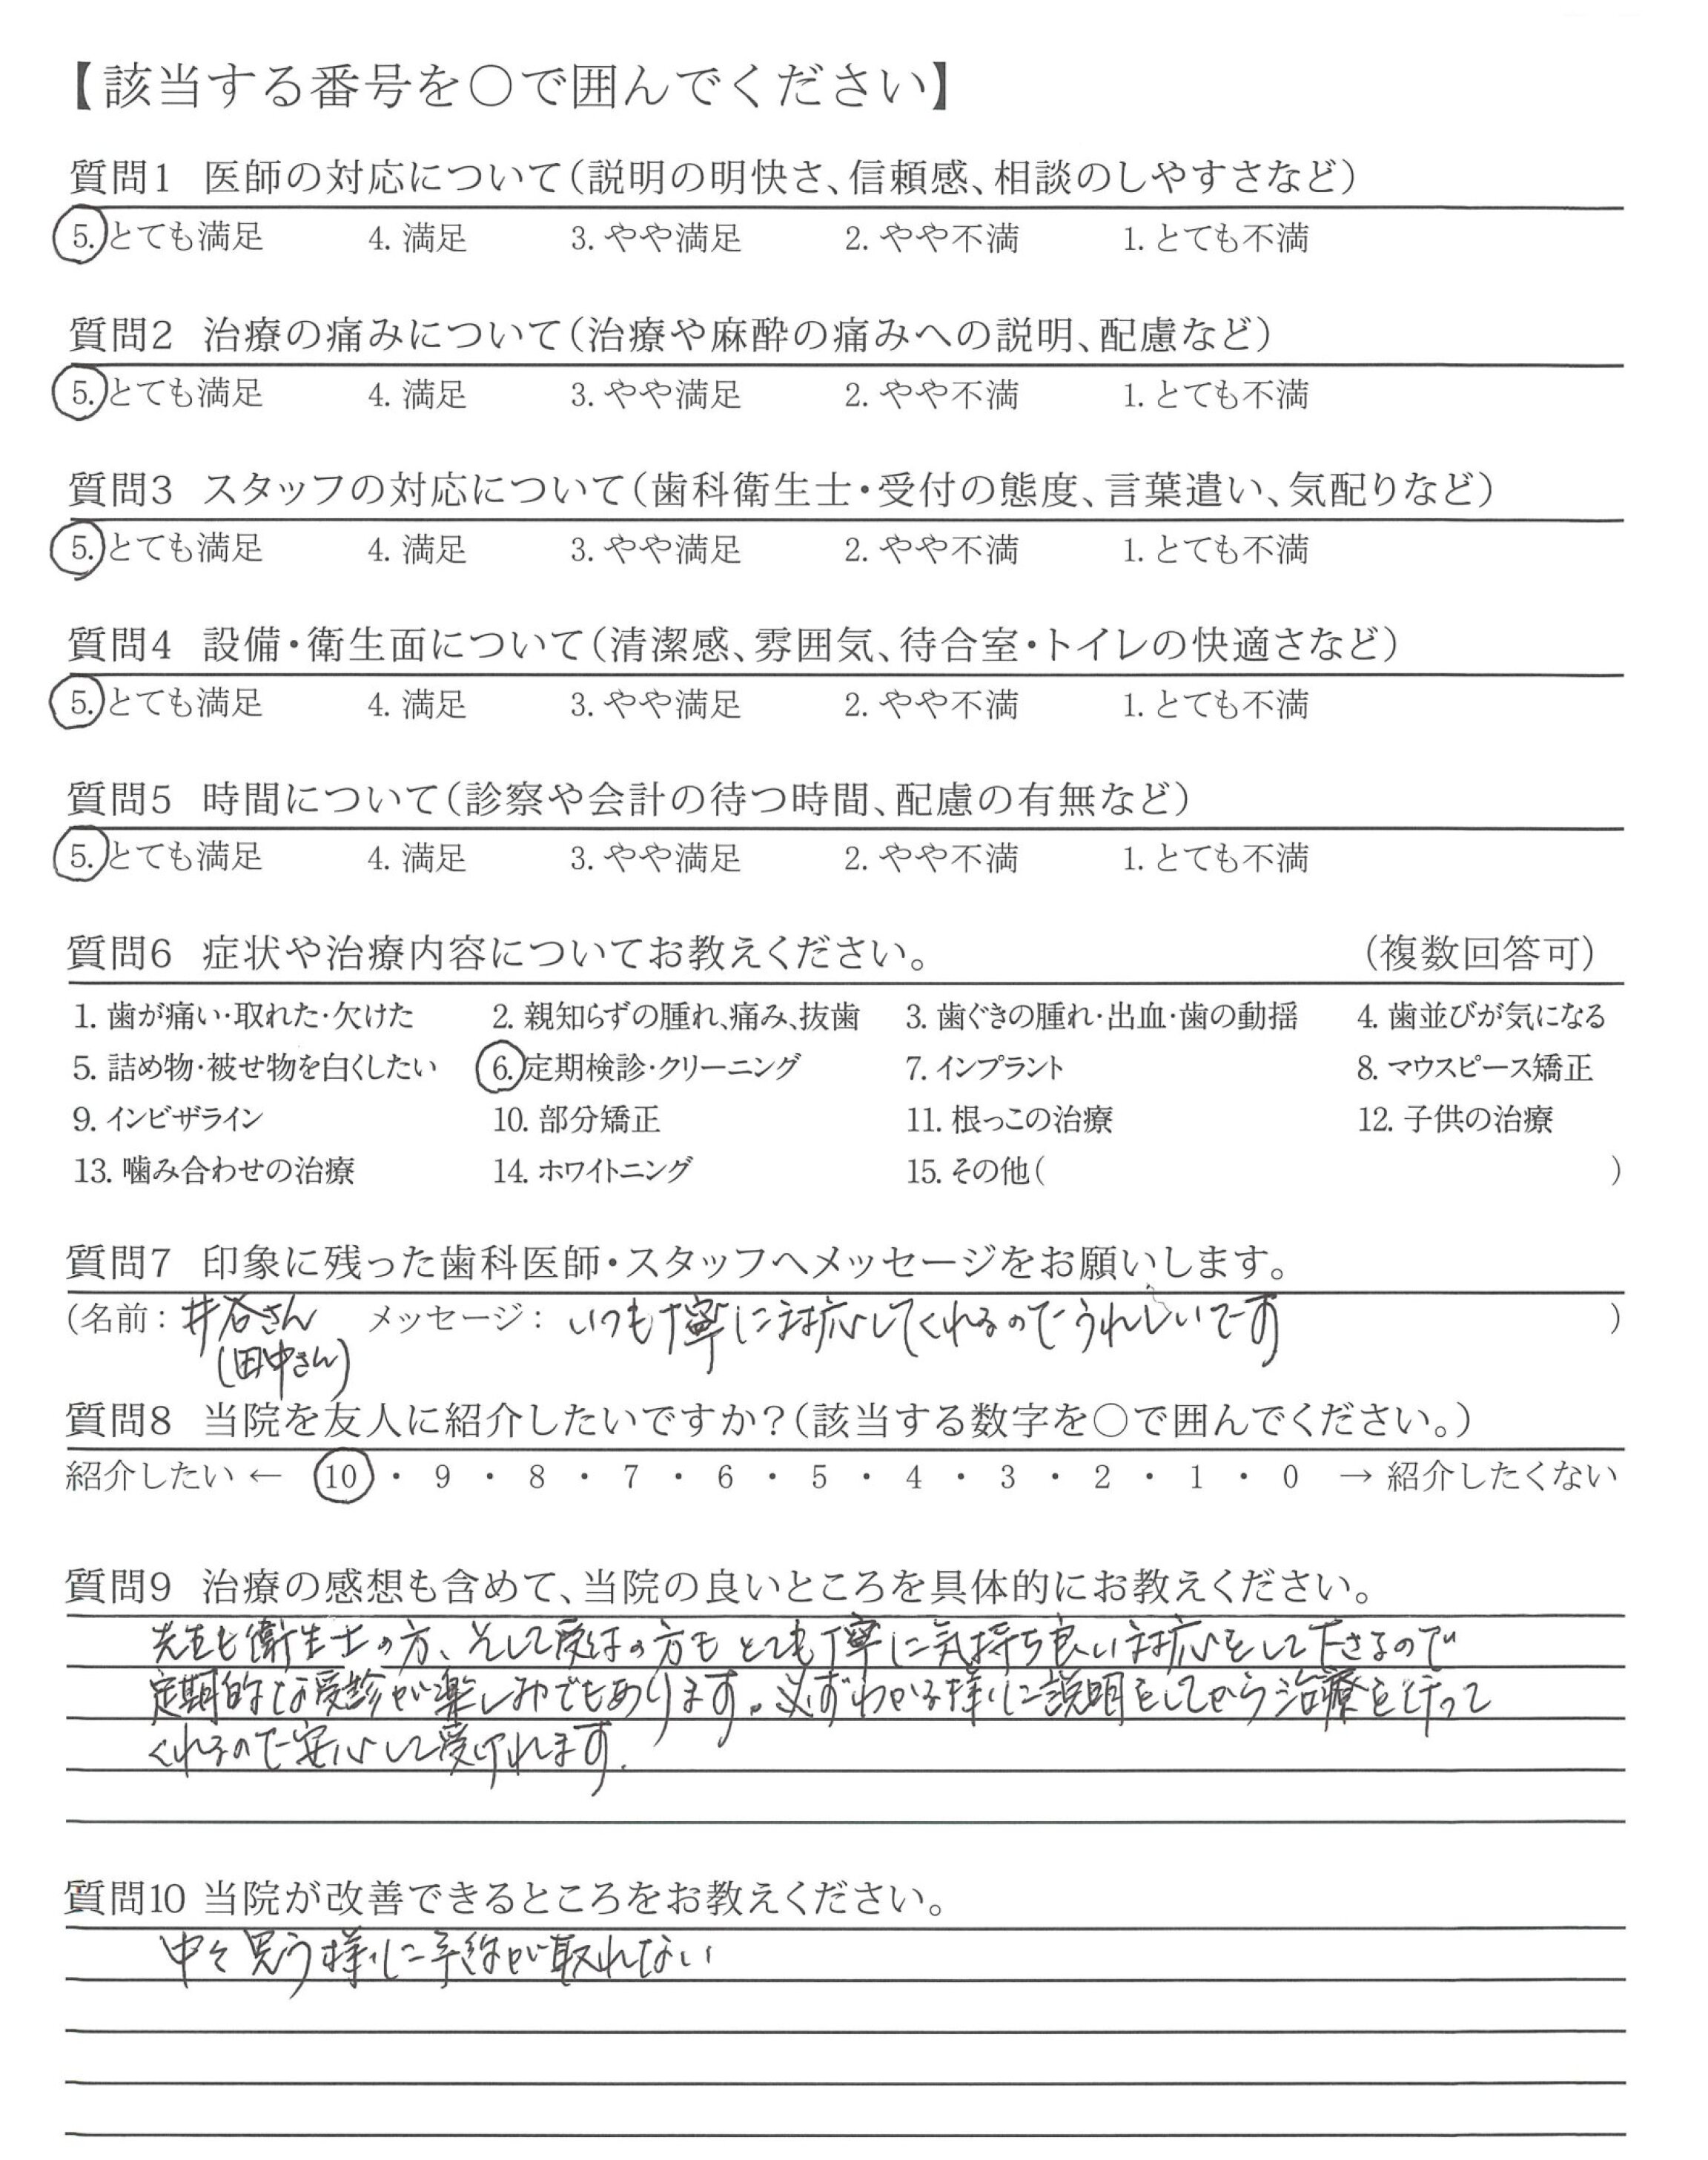 【該当する番号を○で囲んでください】
質問1 医師の対応について(説明の明快さ、信頼感、相談のしやすさなど)
5. とても満足 4. 満足 3. やや満足 2. やや不満 1. とても不満
質問2 治療の痛みについて(治療や麻酔の痛みへの説明、配慮など)
5. とても満足 4. 満足 3. やや満足 2. やや不満 1. とても不満
質問3 スタッフの対応について(歯科衛生士・受付の態度、言葉遣い、気配りなど)
5. とても満足 4. 満足 3. やや満足 2. やや不満 1. とても不満
質問4 設備・衛生面について(清潔感、雰囲気、待合室・トイレの快適さなど)
5. とても満足 4. 満足 3. やや満足 2. やや不満 1. とても不満
質問5 時間について(診察や会計の待つ時間、配慮の有無など)
5. とても満足 4. 満足 3. やや満足 2. やや不満 1. とても不満
質問6 症状や治療内容についてお教えください。 (複数回答可)
1. 歯が痛い・取れた・欠けた 2. 親知らずの腫れ、痛み、抜歯 3. 歯ぐきの腫れ・出血・歯の動揺 4. 歯並びが気になる
5. 詰め物・被せ物を白くしたい 6. 定期検診・クリーニング 7. インプラント 8. マウスピース矯正
9. インビザライン 10. 部分矯正 11. 根っこの治療 12. 子供の治療
13. 噛み合わせの治療 14. ホワイトニング 15. その他( )
質問7 印象に残った歯科医師・スタッフへメッセージをお願いします。
(名前: 井谷さん メッセージ: いつも丁寧に対応してくれるのでうれしいです )
(田中さん)
質問8 当院を友人に紹介したいですか?(該当する数字を○で囲んでください。)
紹介したい ← 10 ・ 9 ・ 8 ・ 7 ・ 6 ・ 5 ・ 4 ・ 3 ・ 2 ・ 1 ・ 0 → 紹介したくない
質問9 治療の感想も含めて、当院の良いところを具体的にお教えください。
先生も衛生士の方、そして受付の方もとても丁寧に気持ち良い対応をして下さるので
定期的な受診が楽しみでもあります。必ずわかる様に説明をしてから治療を行って
くれるので安心して受けれます.
質問10 当院が改善できるところをお教えください。
中々思う様に予約が取れない